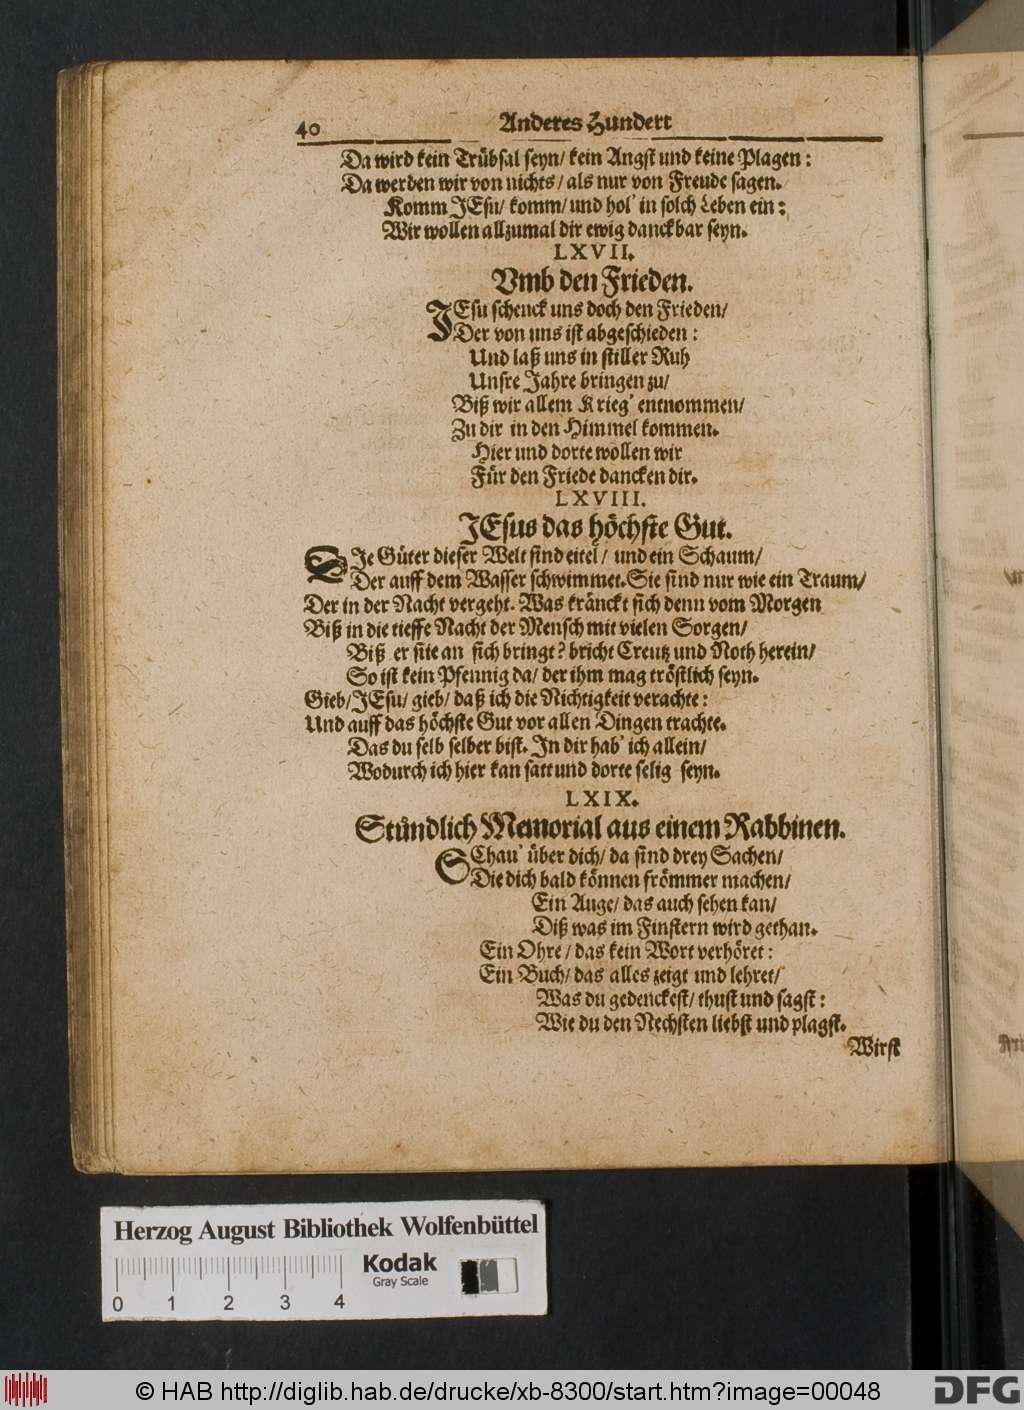 40
Anderes Hundert
Da wird kein Trübsal seyn/ kein Angst und keine Plagen:
Da werden wir von nichts/ als nur von Freude sagen.
Komm JEsu/ komm/ und hol' in solch Leben ein:
Wir wollen allzumal dir ewig danckbar seyn.
LXVII.
Vmb den Frieden.
JEsu schenck uns doch den Frieden/
Der von uns ist abgeschieden:
Und laß uns in stiller Ruh
Unsre Jahre bringen zu/
Biß wir allem Krieg' entnommen/
Zu dir in den Himmel kommen.
Hier und dorte wollen wir
Für den Friede dancken dir.
LXVIII.
JEsus das höchste Gut.
DIe Güter dieser Welt sind eitel/ und ein Schaum/
Der auff dem Wasser schwimmet. Sie sind nur wie ein Traum/
Der in der Nacht vergeht. Was kränckt sich denn vom Morgen
Biß in die tieffe Nacht der Mensch mit vielen Sorgen/
Biß er siie an sich bringt? bricht Creutz und Noth herein/
So ist kein Pfennig da/ der ihm mag tröstlich seyn.
Gieb/ JEsu/ gieb/ daß ich die Nichtigkeit verachte:
Und auff das höchste Gut vor allen Dingen trachte.
Das du selb selber bist. In dir hab' ich allein/
Wodurch ich hier kan satt und dorte selig seyn.
LXIX.
Stündlich Memorial aus einem Rabbinen.
SChau' über dich/ da sind drey Sachen/
Die dich bald können frömmer machen/
Ein Auge/ das auch sehen kan/
Diß was im Finstern wird gethan.
Ein Ohre/ das kein Wort verhöret:
Ein Buch/ das alles zeigt und lehret/
Was du gedenckest/ thust und sagst:
Wie du den Nechsten liebst und plagst.
Wirst
Herzog August Bibliothek Wolfenbüttel
Kodak
Gray Scale
0 1 2 3 4
© HAB http://diglib.hab.de/drucke/xb-8300/start.htm?image=00048
DFG